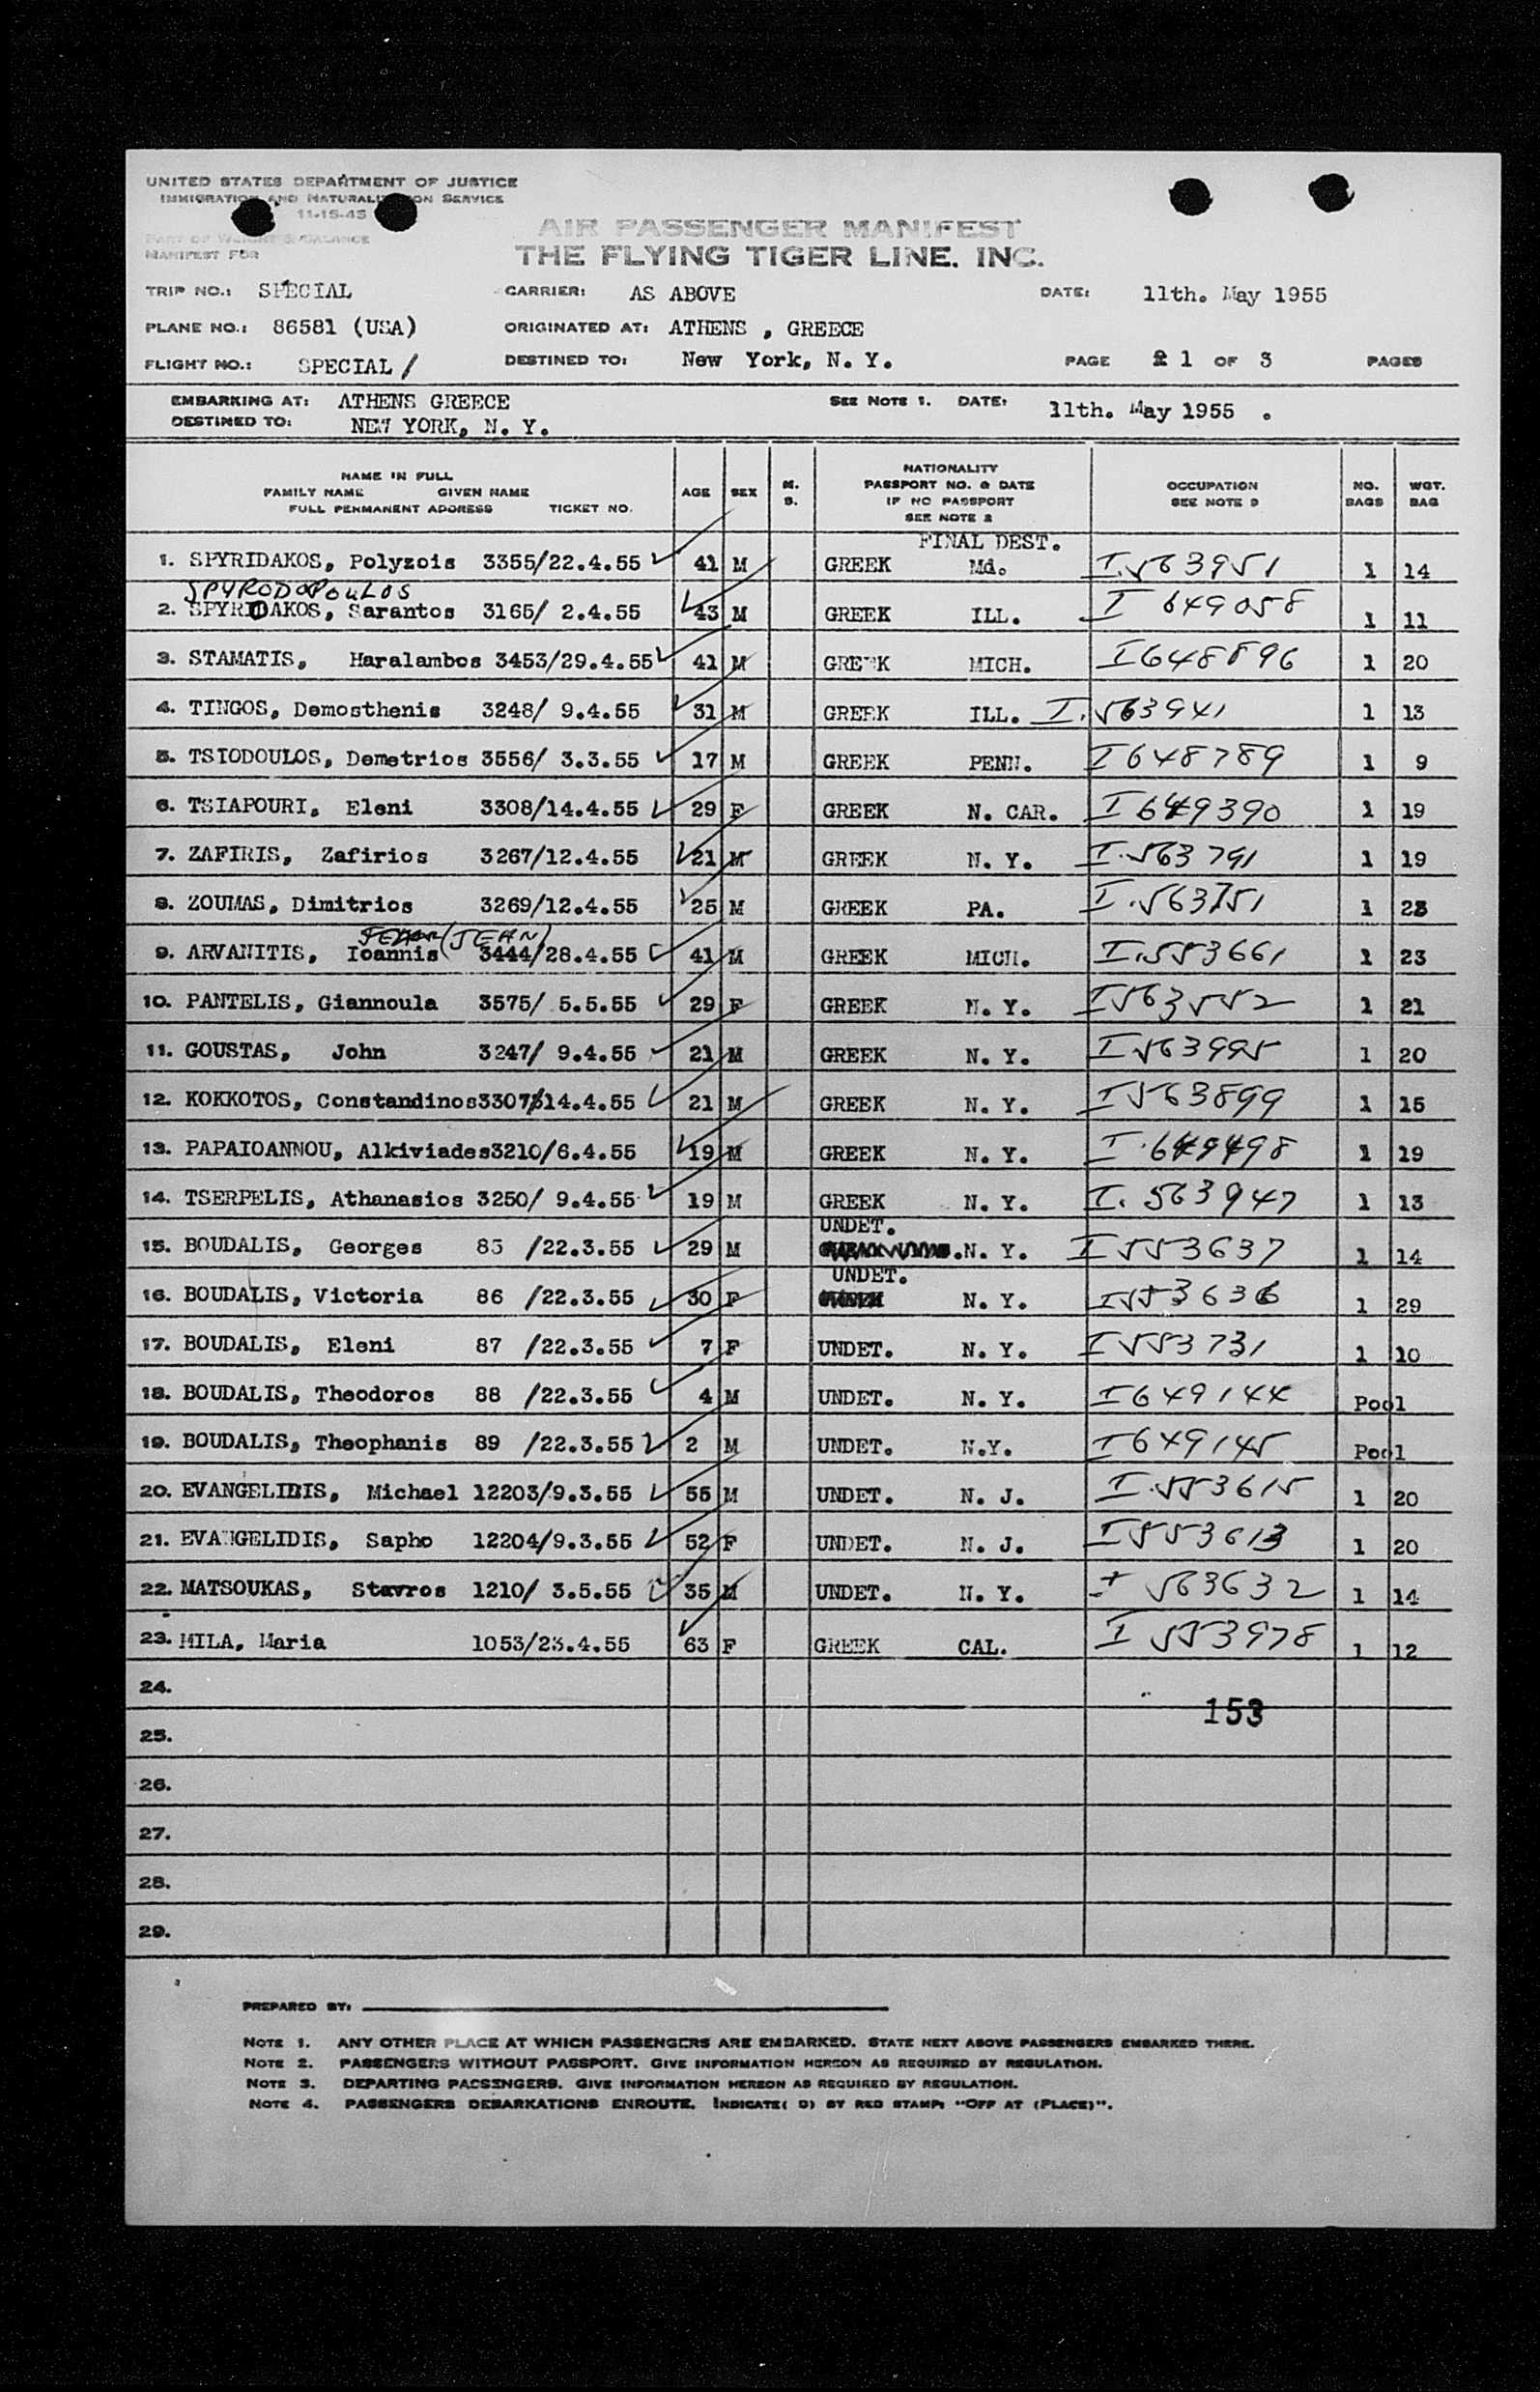 UNITED STATES DEPARTMENT OF JUSTICE
IMMIGRATION AND NATURALIZATION SERVICE
11-15-45
PART OF WEIGHT & BALANCE
MANIFEST FOR
AIR PASSENGER MANIFEST
THE FLYING TIGER LINE. INC.
TRIP NO.: SPECIAL CARRIER: AS ABOVE DATE: 11th. May 1955
PLANE NO.: 86581 (USA) ORIGINATED AT: ATHENS , GREECE
FLIGHT NO.: SPECIAL / DESTINED TO: New York, N. Y. PAGE 1 OF 3 PAGES
EMBARKING AT: ATHENS GREECE SEE NOTE 1. DATE: 11th. May 1955 .
DESTINED TO: NEW YORK, N. Y.
NAME IN FULL
FAMILY NAME GIVEN NAME
FULL PERMANENT ADDRESS TICKET NO.
AGE SEX M. S.
NATIONALITY
PASSPORT NO. & DATE
IF NO PASSPORT
SEE NOTE 2
OCCUPATION
SEE NOTE 3
NO. BAGS
WGT. BAG
FINAL DEST.
1. SPYRIDAKOS, Polyzois 3355/22.4.55 41 M GREEK Md. I.563951 1 14
SPYRODOPOULOS
2. SPYRIDAKOS, Sarantos 3165/ 2.4.55 43 M GREEK ILL. I 649058 1 11
3. STAMATIS, Haralambos 3453/29.4.55 41 M GREEK MICH. I648896 1 20
4. TINGOS, Demosthenis 3248/ 9.4.55 31 M GREEK ILL. I.563941 1 13
5. TSIODOULOS, Demetrios 3556/ 3.3.55 17 M GREEK PENN. I648789 1 9
6. TSIAPOURI, Eleni 3308/14.4.55 29 F GREEK N. CAR. I649390 1 19
7. ZAFIRIS, Zafirios 3267/12.4.55 21 M GREEK N. Y. I.563791 1 19
8. ZOUMAS, Dimitrios 3269/12.4.55 25 M GREEK PA. I.563751 1 23
(JEAN)
9. ARVANITIS, Ioannis 3444/28.4.55 41 M GREEK MICH. I.553661 1 23
10. PANTELIS, Giannoula 3575/ 5.5.55 29 F GREEK N. Y. I563552 1 21
11. GOUSTAS, John 3247/ 9.4.55 21 M GREEK N. Y. I563995 1 20
12. KOKKOTOS, Constandinos3307/14.4.55 21 M GREEK N. Y. I563899 1 15
13. PAPAIOANNOU, Alkiviades3210/6.4.55 19 M GREEK N. Y. I.649498 1 19
14. TSERPELIS, Athanasios 3250/ 9.4.55 19 M GREEK N. Y. I. 563947 1 13
UNDET.
15. BOUDALIS, Georges 85 /22.3.55 29 M .N. Y. I553637 1 14
UNDET.
16. BOUDALIS, Victoria 86 /22.3.55 30 F GREEK N. Y. I553636 1 29
17. BOUDALIS, Eleni 87 /22.3.55 7 F UNDET. N. Y. I553731 1 10
18. BOUDALIS, Theodoros 88 /22.3.55 4 M UNDET. N. Y. I649144 Pool
19. BOUDALIS, Theophanis 89 /22.3.55 2 M UNDET. N.Y. I649145 Pool
20. EVANGELIDIS, Michael 12203/9.3.55 55 M UNDET. N. J. I.553615 1 20
21. EVANGELIDIS, Sapho 12204/9.3.55 52 F UNDET. N. J. I553613 1 20
22. MATSOUKAS, Stavros 1210/ 3.5.55 35 M UNDET. N. Y. I 563632 1 14
23. MILA, Maria 1053/23.4.55 63 F GREEK CAL. I 553978 1 12
24.
153
25.
26.
27.
28.
29.
PREPARED BY:
NOTE 1. ANY OTHER PLACE AT WHICH PASSENGERS ARE EMBARKED. STATE NEXT ABOVE PASSENGERS EMBARKED THERE.
NOTE 2. PASSENGERS WITHOUT PASSPORT. GIVE INFORMATION HEREON AS REQUIRED BY REGULATION.
NOTE 3. DEPARTING PASSENGERS. GIVE INFORMATION HEREON AS REQUIRED BY REGULATION.
NOTE 4. PASSENGERS DEBARKATIONS ENROUTE. INDICATE( D) BY RED STAMP: "OFF AT (PLACE)".